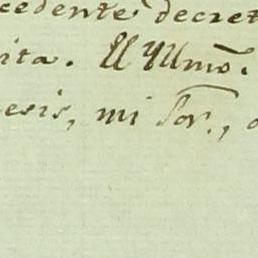 cedente decret
ita. El Yllmô.
esis, mi Sor.,